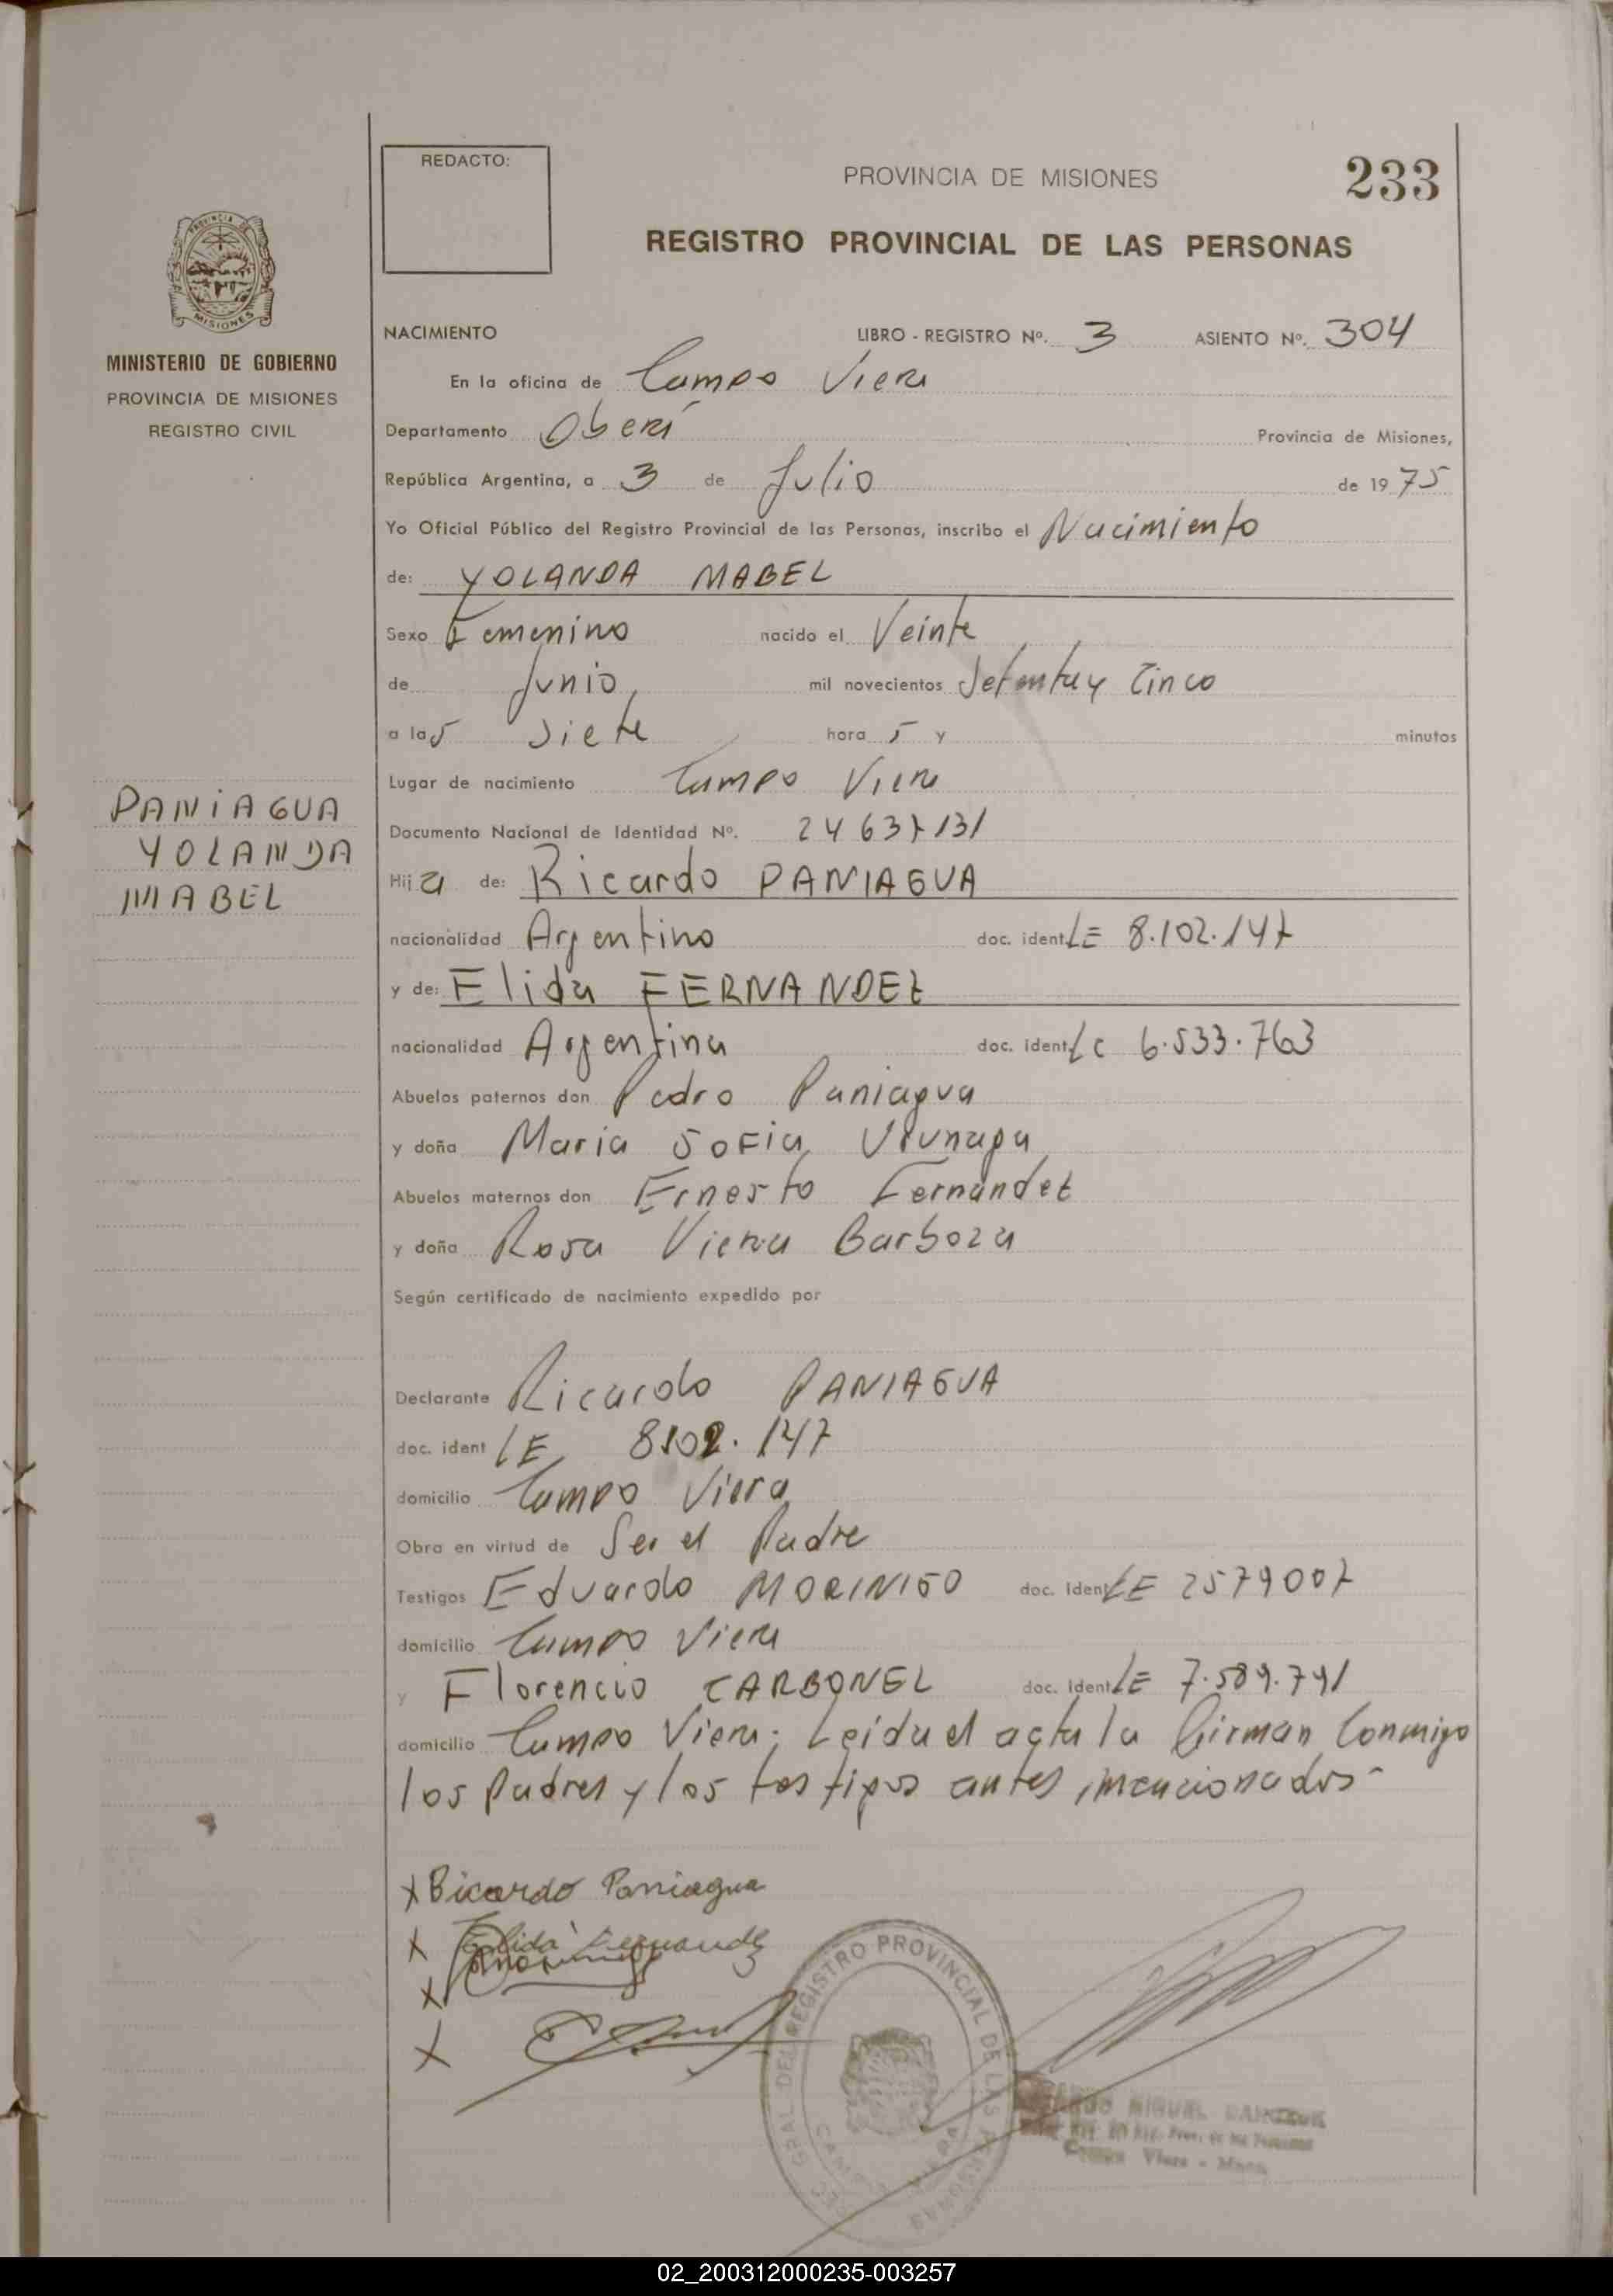 REDACTO:
PROVINCIA DE MISIONES
233
REGISTRO PROVINCIAL DE LAS PERSONAS
PROVINCIA DE
MISIONES
MINISTERIO DE GOBIERNO
PROVINCIA DE MISIONES
REGISTRO CIVIL
NACIMIENTO LIBRO - REGISTRO Nº. 3 ASIENTO Nº. 304
En la oficina de Campo Viera
Departamento Oberá Provincia de Misiones,
República Argentina, a 3 de Julio de 1975
Yo Oficial Público del Registro Provincial de las Personas, inscribo el Nacimiento
de: YOLANDA MABEL
Sexo Femenino nacido el Veinte
de Junio, mil novecientos Setenta y Cinco
a las Siete hora s y minutos
Lugar de nacimiento Campo Viera
PANIAGUA
YOLANDA
MABEL
Documento Nacional de Identidad Nº. 24637131
Hija de: Ricardo PANIAGUA
nacionalidad Argentino doc. ident LE 8.102.147
y de: Elida FERNANDEZ
nacionalidad Argentina doc. ident LC 6.533.763
Abuelos paternos don Pedro Paniagua
y doña Maria Sofia
Abuelos maternos don Ernesto Fernandez
y doña Rosa Viera Barboza
Según certificado de nacimiento expedido por
Declarante Ricardo PANIAGUA
doc. ident LE 8102.147
domicilio Campo Viera
Obra en virtud de Ser el Padre
Testigos Eduardo MORINIGO doc. Ident LE 2579007
domicilio Campo Viera
y Florencio CARBONEL doc. Ident LE 7.589.791
domicilio Campo Viera; Leida el acta la Firman Conmigo
los Padres y los testigos antes mencionados-
x Ricardo Paniagua
x Elida Fernandez
x
x
GRAL. DEL REGISTRO PROVINCIAL DE LAS PERSONAS
CAMPO VIERA
MIGUEL
Prov. de las Personas
Campo Viera - Mnes.
02_200312000235-003257